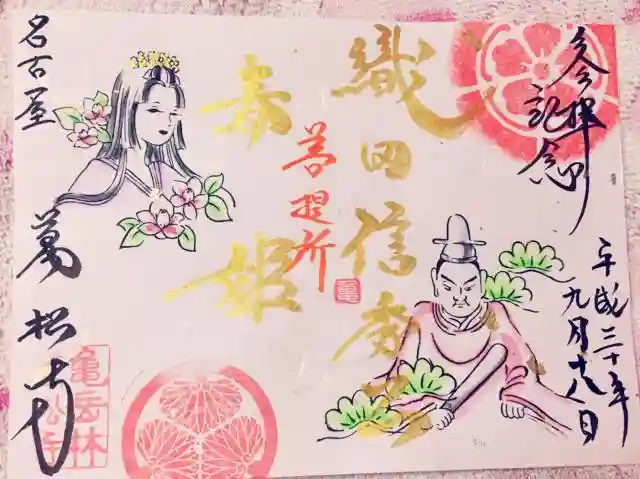 参拝
記念
平成三十年
九月十八日
織田信秀公
菩提所
亀
春姫
名古屋
萬松寺
亀岳林